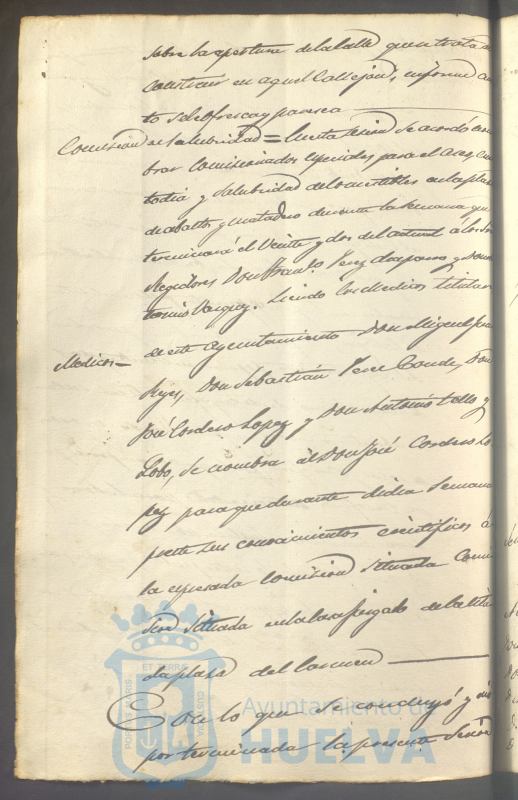 sobre la apertura de la Calle que se trata de
construir en aquel Callejon, informe
to se le ofresca y paresca
Comision de Salubridad = En esta Sesion se acordó nom
brar Comisionados para el Aseo, cus
todia y salubridad de los comestibles en la plaza
de abastos y matadero durante la semana que
terminará el Veinte y dos del actual á los Sres
Regidores Don Fran.co Perez y Don
tonio Vazquez. Siendo los Medicos titulares
Medicos = de este Ayuntamiento Don Miguel
Reyes, Don Sebastián Perez Conde, Don
José Cordero Lopez y Don Antonio Tello y
Lobo, se nombra al Don José Cordero Lo
pez para que durante dicha Semana
preste sus conocimientos cientificos á
la espresada Comision situada
situada en la Casa Juzgado de la
da plaza del Carmen
Con lo que se concluyó y dió
por terminada la presente Sesion
PORTUS MARIS
ET TERRÆ
CUSTODIA
Ayuntamiento de
HUELVA